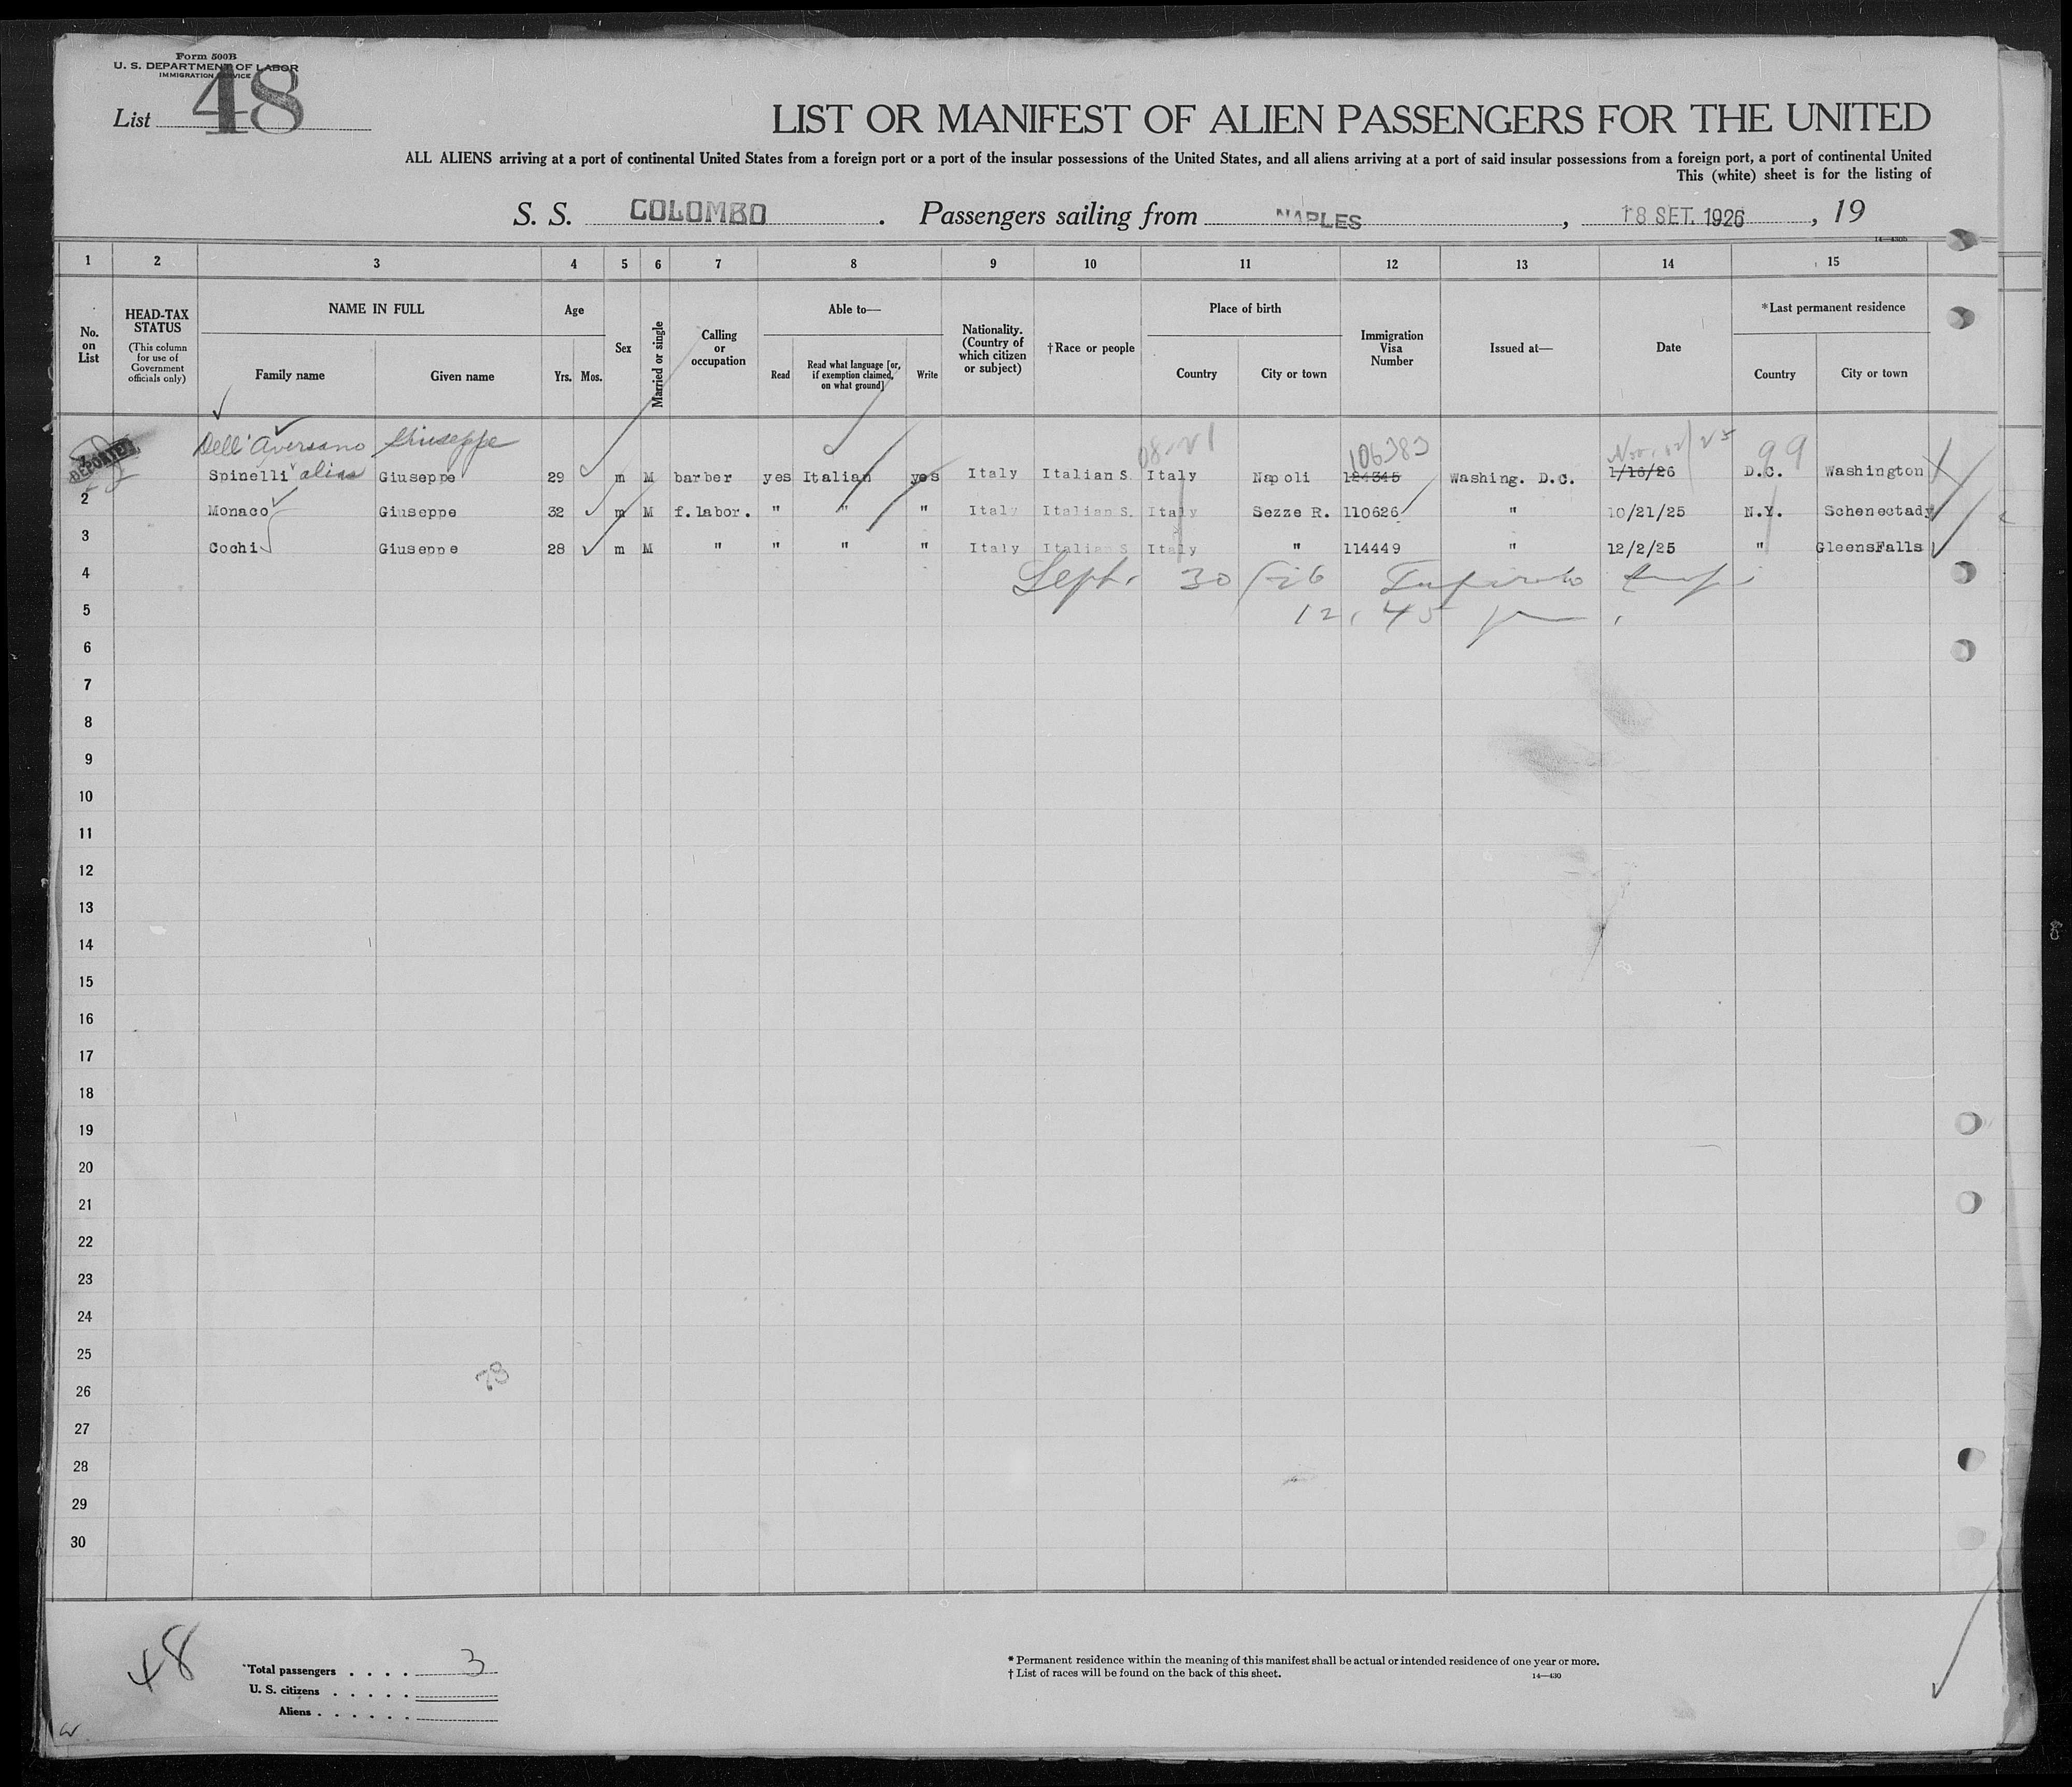 Form 500B
U. S. DEPARTMENT OF LABOR
IMMIGRATION SERVICE
List 48
LIST OR MANIFEST OF ALIEN PASSENGERS FOR THE UNITED
ALL ALIENS arriving at a port of continental United States from a foreign port or a port of the insular possessions of the United States, and all aliens arriving at a port of said insular possessions from a foreign port, a port of continental United
This (white) sheet is for the listing of
S. S. COLOMBO. Passengers sailing from NAPLES, 18 SET. 1926, 19
1 2 3 4 5 6 7 8 9 10 11 12 13 14 15
No. on List
HEAD-TAX STATUS
(This column for use of Government officials only)
NAME IN FULL
Family name
Given name
Age
Yrs. Mos.
Sex
Married or single
Calling or occupation
Able to—
Read
Read what language [or, if exemption claimed, on what ground]
Write
Nationality. (Country of which citizen or subject)
†Race or people
Place of birth
Country
City or town
Immigration Visa Number
Issued at—
Date
*Last permanent residence
Country
City or town
DEPORTED
Dell'Aversano Giuseppe 106383 99
Spinelli alias Giuseppe 29 m M barber yes Italian yes Italy Italian S. Italy Napoli 124345 Washing. D.C. 1/16/26 D.C. Washington
2 Monaco Giuseppe 32 m M f.labor. " " " Italy Italian S. Italy Sezze R. 110626 " 10/21/25 N.Y. Schenectady
3 Cochi Giuseppe 28 m M " " " " Italy Italian S Italy " 114449 " 12/2/25 " GleensFalls
4 Sept. 30/26
5 12,45
6
7
8
9
10
11
12
13
14
15
16
17
18
19
20
21
22
23
24
25
26
27
28
29
30
48
Total passengers . . . . 3
U. S. citizens . . . . .
Aliens . . . . . .
* Permanent residence within the meaning of this manifest shall be actual or intended residence of one year or more.
† List of races will be found on the back of this sheet.
14—430